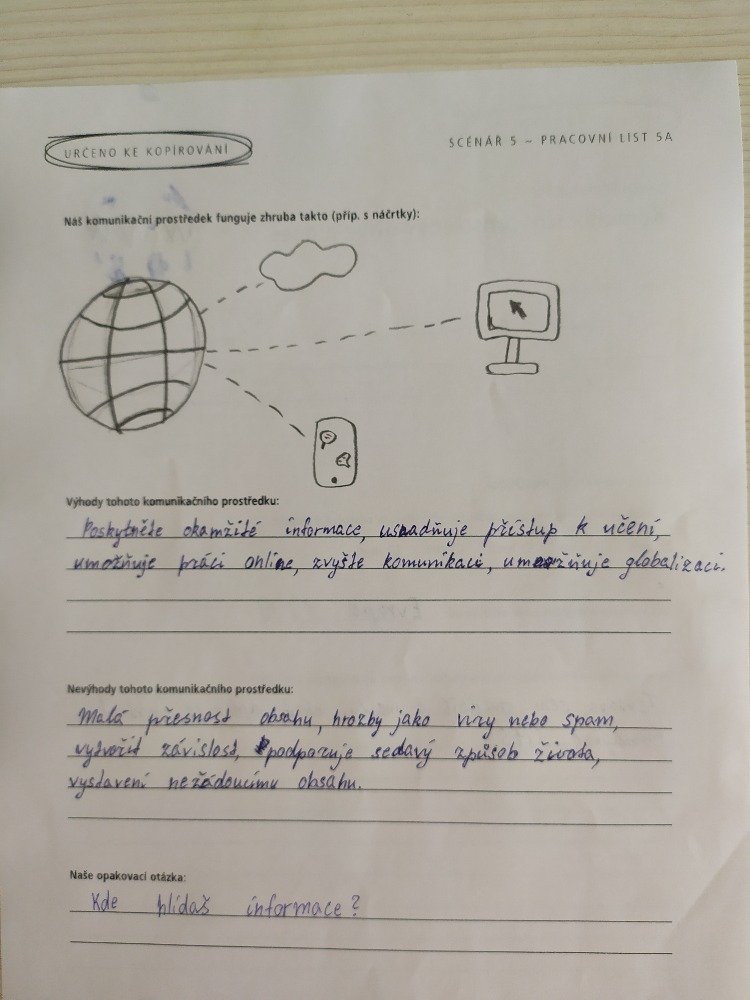 URČENO KE KOPÍROVÁNÍ
SCÉNÁŘ 5 – PRACOVNÍ LIST 5A
Náš komunikační prostředek funguje zhruba takto (příp. s náčrtky):
Výhody tohoto komunikačního prostředku:
Poskytněte okamžité informace, usnadňuje přístup k učení,
umožňuje práci online, zvyšte komunikaci, umožňuje globalizaci.
Nevýhody tohoto komunikačního prostředku:
Malá přesnost obsahu, hrozby jako viry nebo spam,
vytvořit závislost, podporuje sedavý způsob života,
vystavení nežádoucímu obsahu.
Naše opakovací otázka:
Kde hlídaš informace?